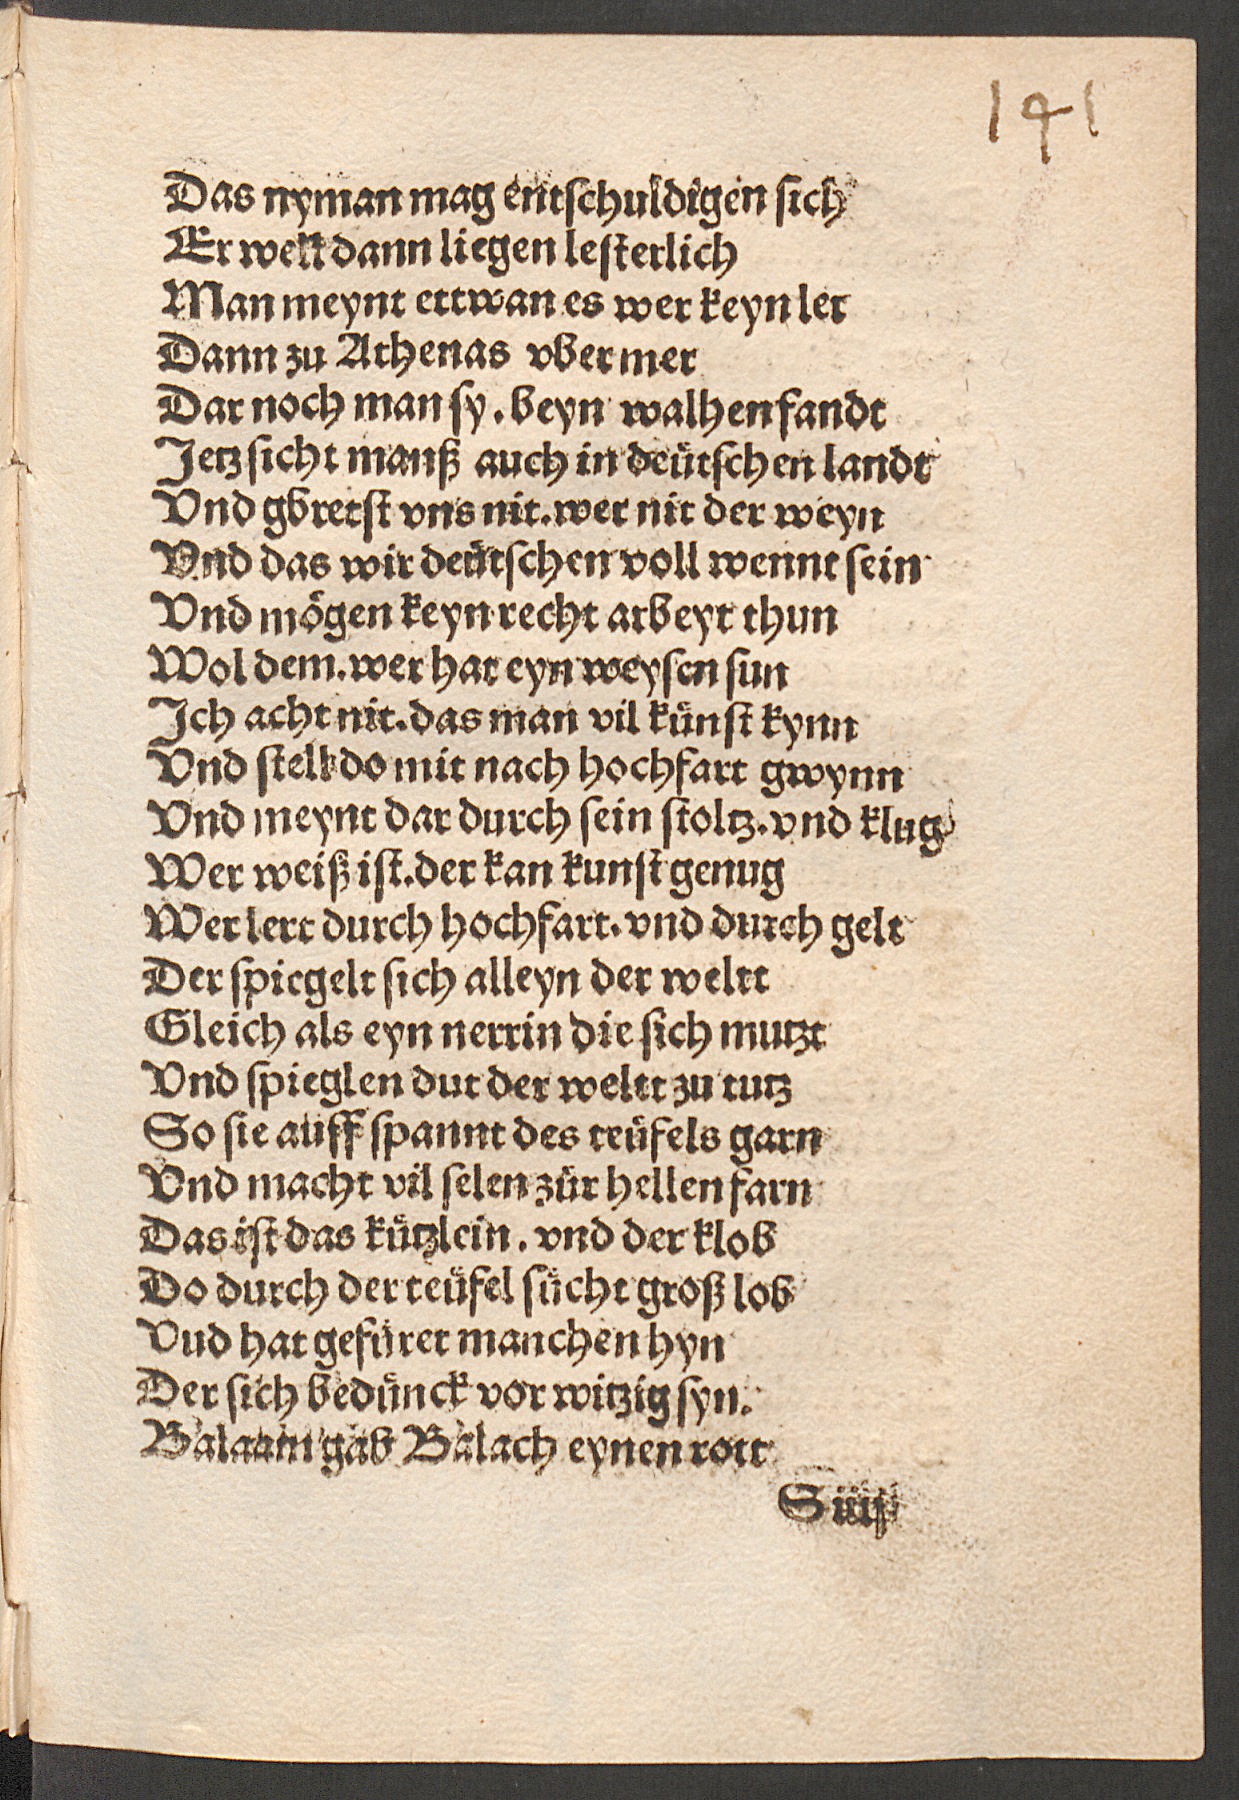 141
Das nyman mag entschuldigen sich
Er well dann liegen lesterlich
Man meynt ettwan es wer keyn ler
Dann zu Athenas vber mer
Dar noch man sy. beyn walhen fandt
Jetz sicht manß auch in deütschen landt
Vnd gbretst vns nit. wer nit der weyn
Vnd das wir deütschen voll wennt sein
Vnd mögen keyn recht arbeyt thun
Wol dem. wer hat eyn weysen sun
Ich acht nit. das man vil künst kynn
Vnd stell do mit nach hochfart gwynn
Vnd meynt dar durch sein stoltz. vnd klug
Wer weiß ist. der kan kunst genug
Wer lert durch hochfart. vnd durch gelt
Der spiegelt sich alleyn der weltt
Gleich als eyn nerrin die sich mutzt
Vnd spieglen dut der weltt zu tutz
So sie auff spannt des teüfels garn
Vnd macht vil selen zür hellen farn
Das ist das kützlein. vnd der klob
Do durch der teüfel sücht groß lob
Vud hat gefüret manchen hyn
Der sich bedünck vor witzig syn.
Balaam gab Balach eynen rott
S iiij